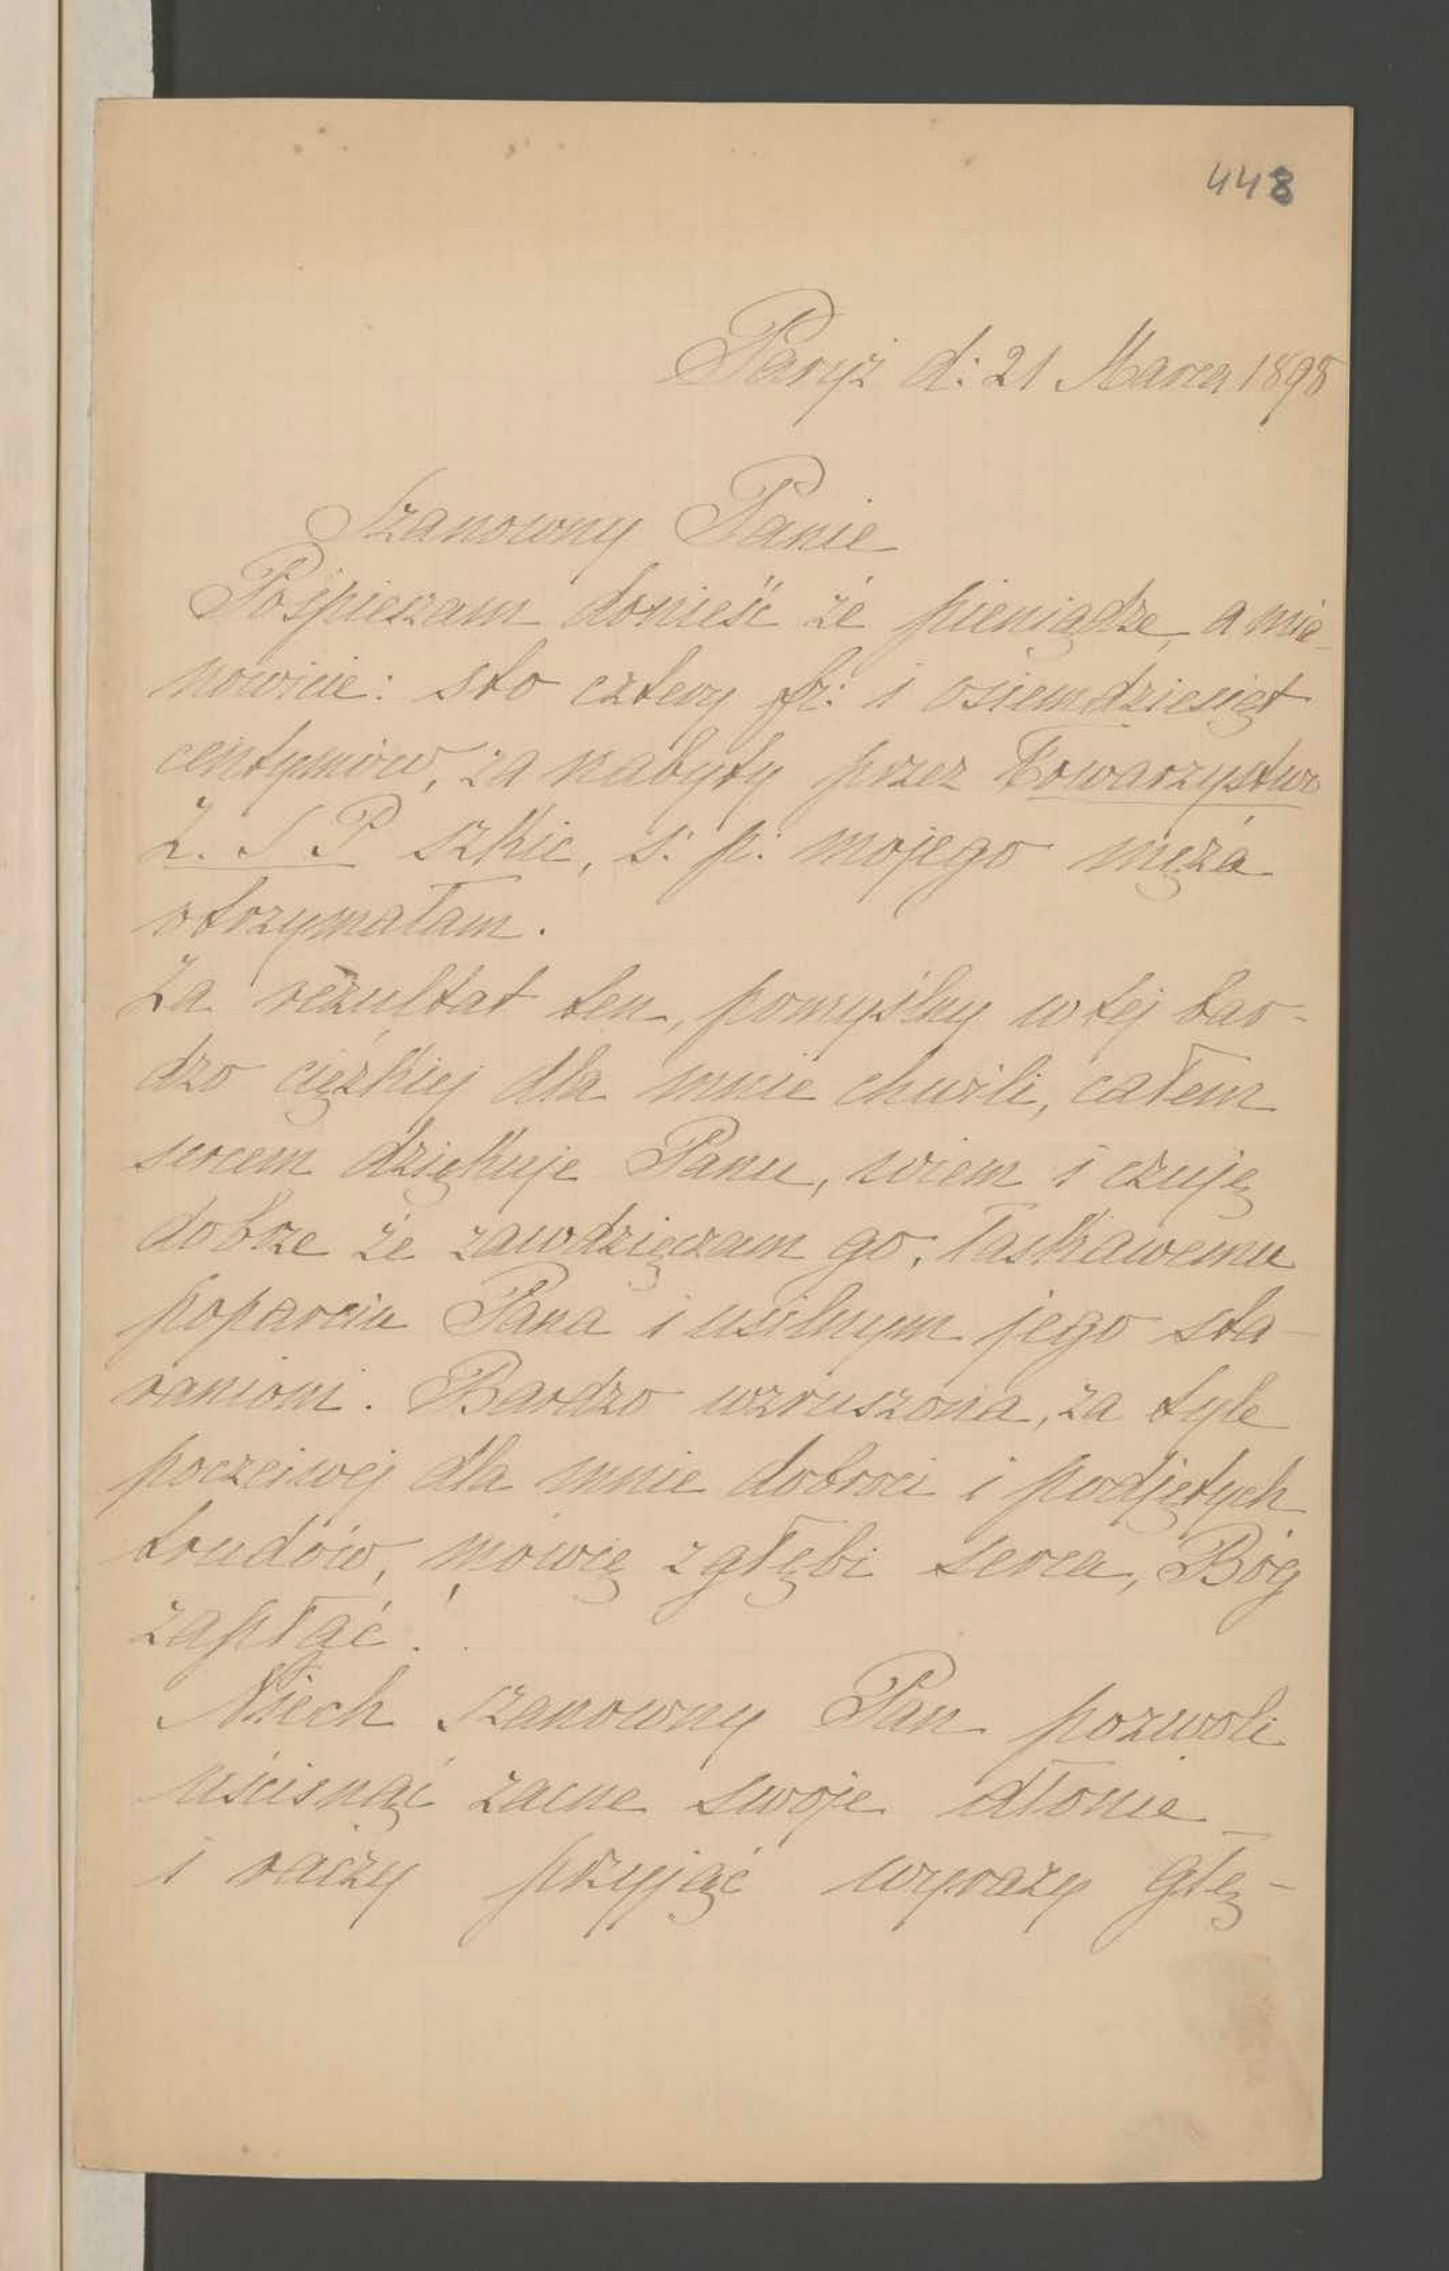 448
Paryż d: 21 Marca 1898
Szanowny Panie
Pośpieszam donieść że pieniądze, a mia
nowicie: sto cztery fr: i osiemdziesiąt
centymów, za nabyty przez Towarzystwo
Z. S P szkic, ś: p: mojego męża
otrzymałam.
Za rezultat ten, pomyślny w tej bar-
dzo ciężkiej dla mnie chwili, całem
sercem dziękuje Panu, wiem i czuję
dobrze że zawdzięczam go, łaskawemu
poparciu Pana i usilnym jego sta
raniom. Bardzo wzruszona, za tyle
poczciwej dla mnie dobroci i podjętych
trudów, mówię z głębi serca, Bóg
zapłać!
Niech szanowny Pan pozwoli
uścisnąć zacne swoje dłonie
i raczy przyjąć wyrazy głę-